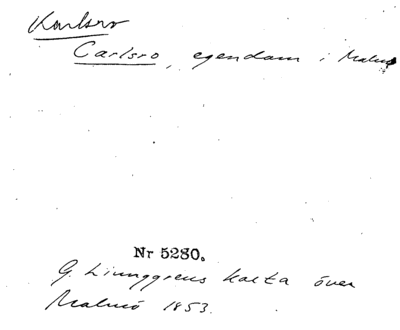 Karlsro
Carlsro, egendom i Malmö
Nr 5280.
G. Ljunggrens karta över
Malmö 1853.